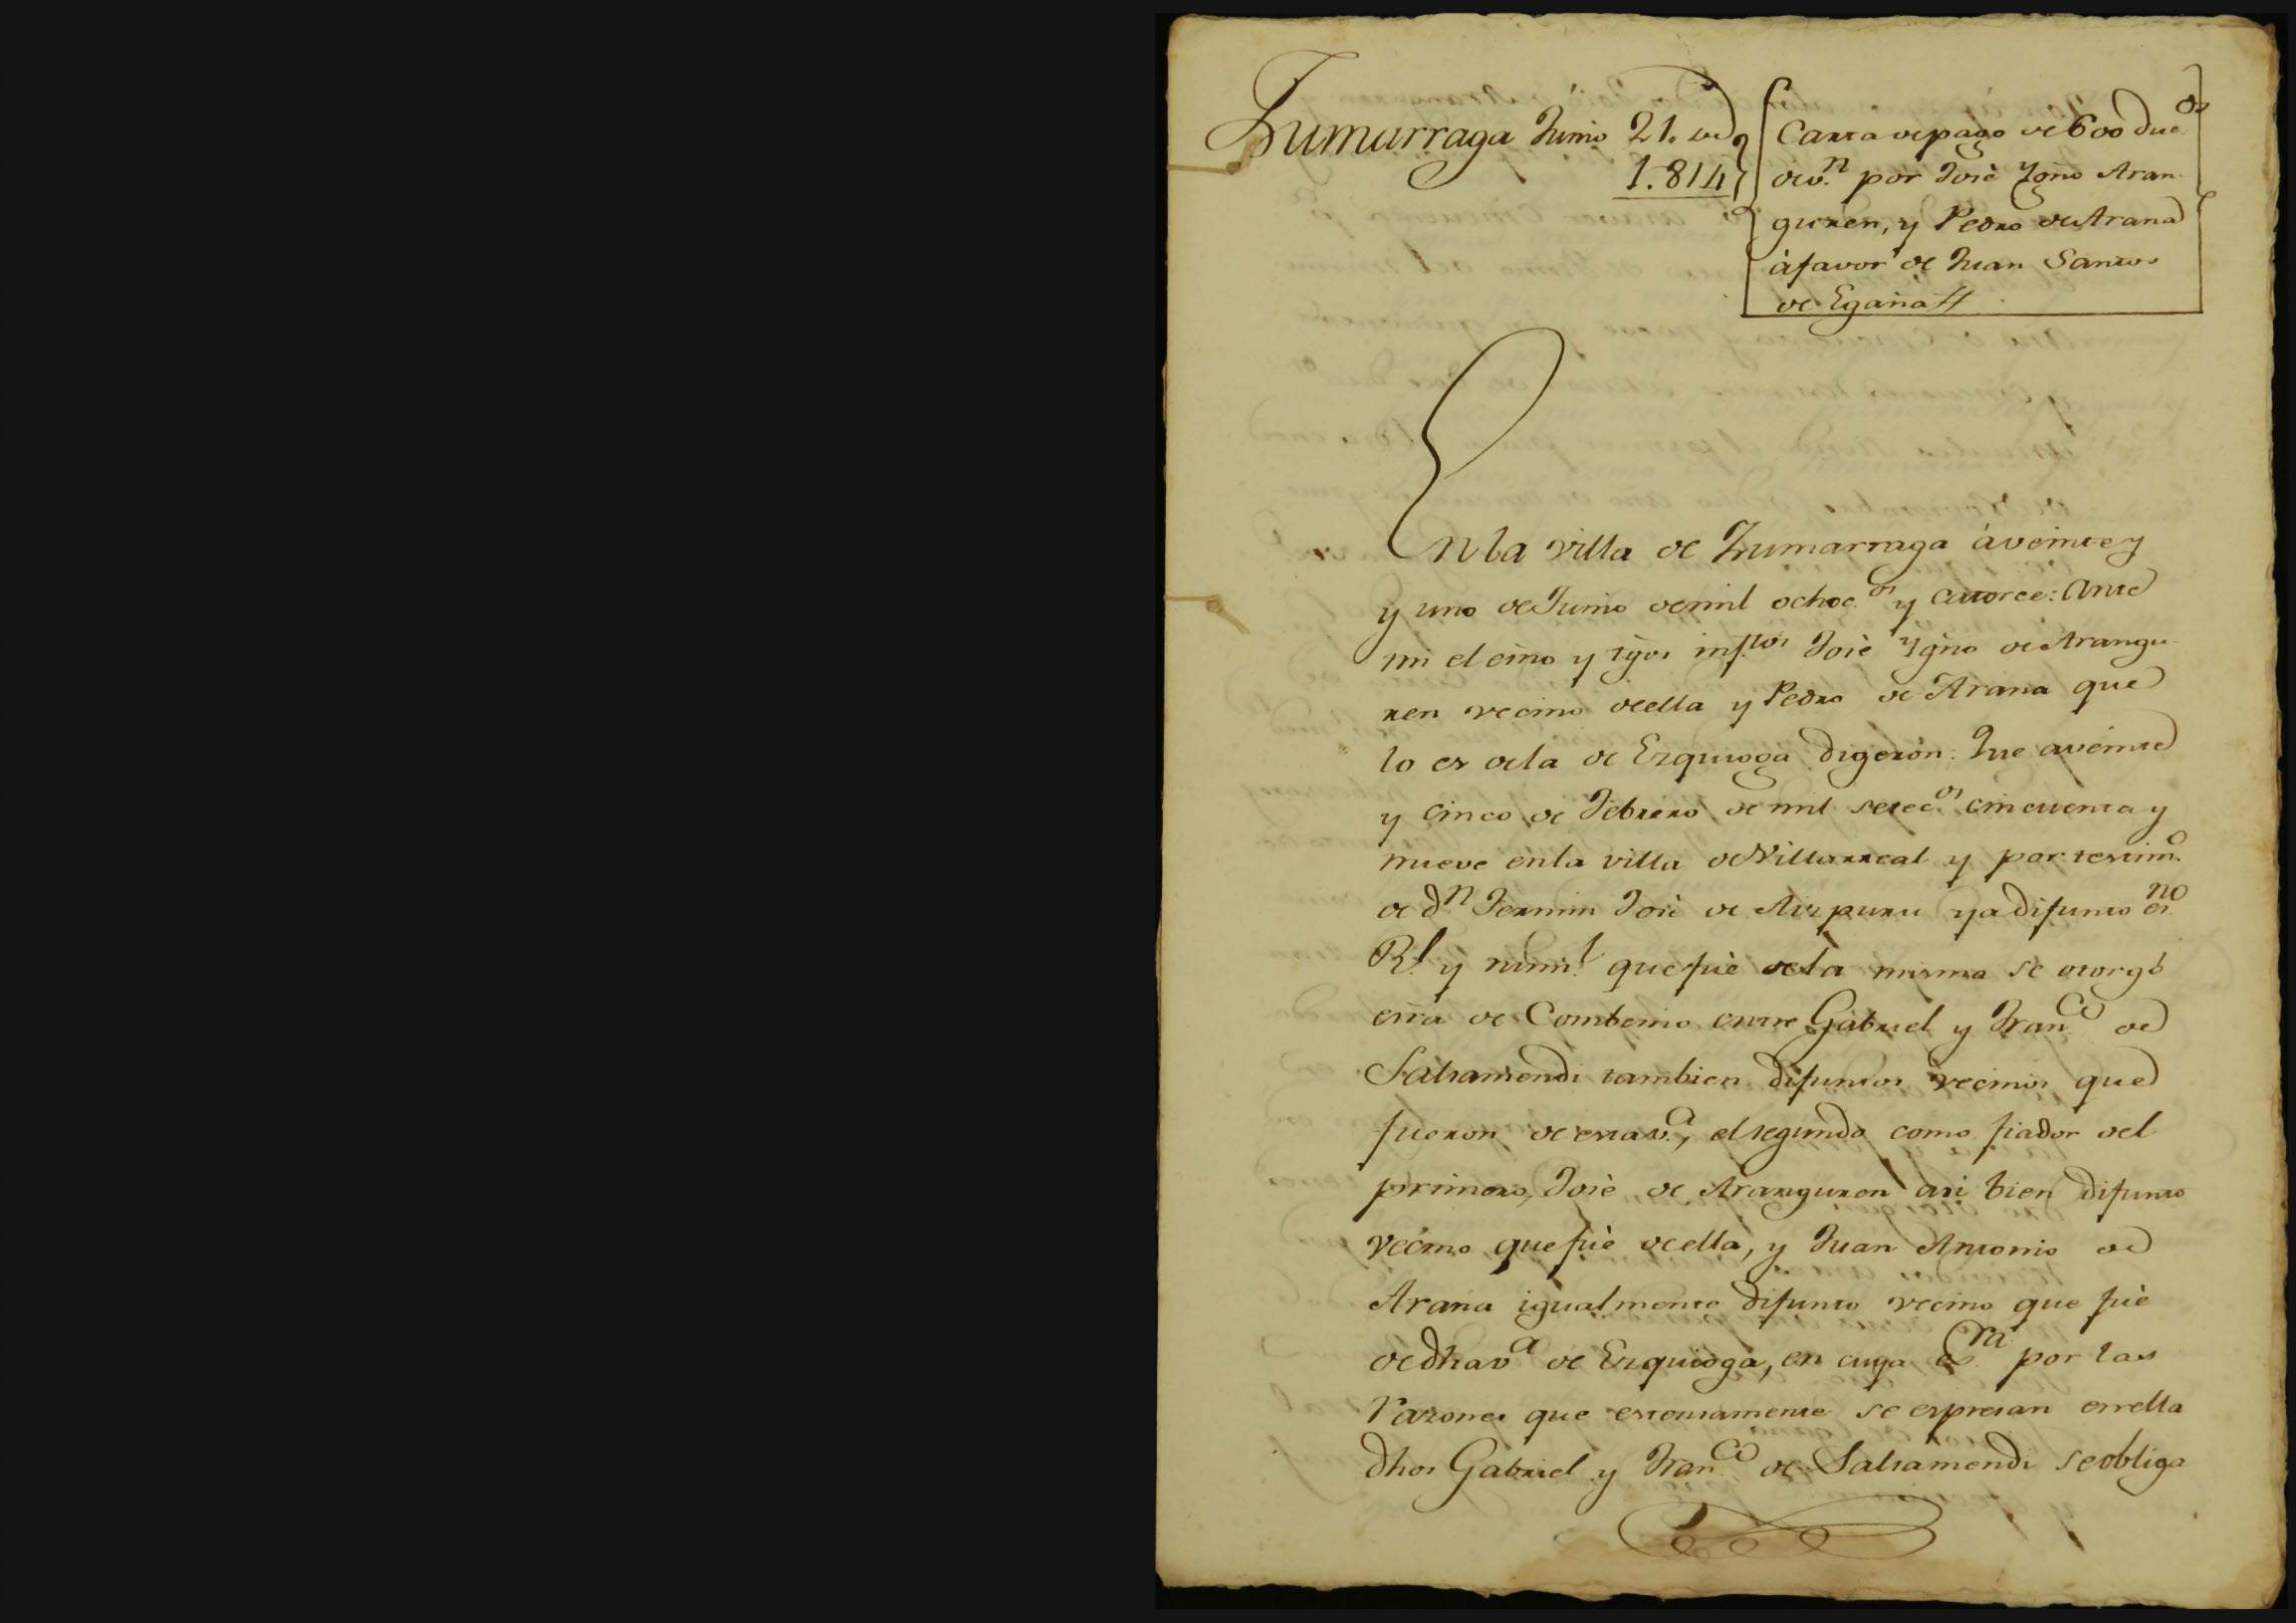 Zumarraga Junio 21. de
1.814
Carta de pago de 600 duc.os
de v.n por José Ygno Aran-
guren, y Pedro de Arana
à favor de Juan Santos
de Egaña
En la villa de Zumarraga á veinte y
y uno de Junio de mil ochoc.os y catorce: Ante
mi el esno y tgos insptos José Ygno de Arangu-
ren vecino de ella y Pedro de Arana que
lo es de la de Ezquioga digeron: Que a veinte
y cinco de Febrero de mil setec.os cincuenta y
nueve en la villa de Villarreal y por testim.o
de d.n Fermin José de Aizpuru ya difunto es.no
R.l y num.l que fuè de la misma se otorgó
esra de Combenio entre Gabriel y Fran.co de
Salsamendi tambien difuntos vecinos que
fueron de esta v.a, el segundo como fiador del
primero, José de Aranguren asi bien difunto
vecino que fuè de ella, y Juan Antonio de
Arana igualmente difunto vecino que fuè
de dha v.a de Ezquioga, en cuya es.ra por las
razones que estensamente se espresan en ella
dhos Gabriel y Fran.co de Salsamendi se obliga